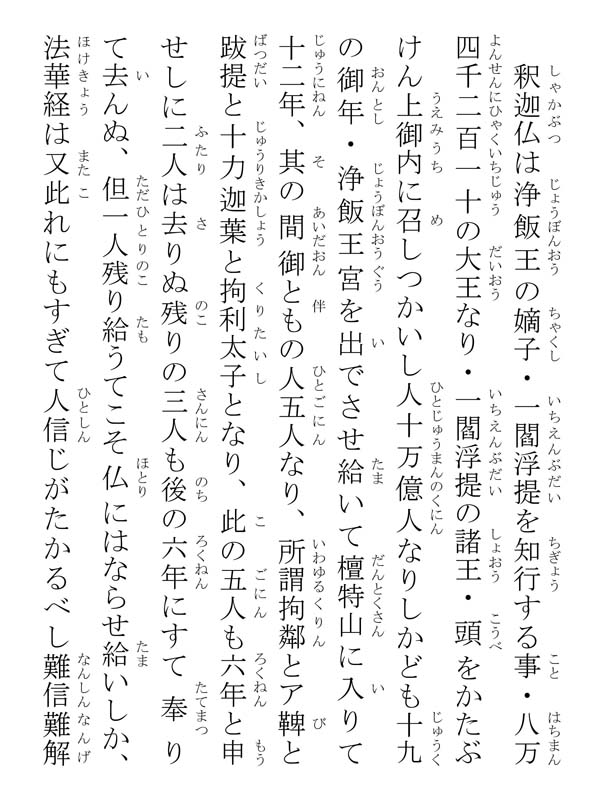 釈迦仏は浄飯王の嫡子・一閻浮提を知行する事・八万
四千二百一十の大王なり・一閻浮提の諸王・頭をかたぶ
けん上御内に召しつかいし人十万億人なりしかども十九
の御年・浄飯王宮を出でさせ給いて檀特山に入りて
十二年、其の間御ともの人五人なり、所謂拘鄰とア鞞と
跋提と十力迦葉と拘利太子となり、此の五人も六年と申
せしに二人は去りぬ残りの三人も後の六年にすて奉り
て去んぬ、但一人残り給うてこそ仏にはならせ給いしか、
法華経は又此れにもすぎて人信じがたかるべし難信難解